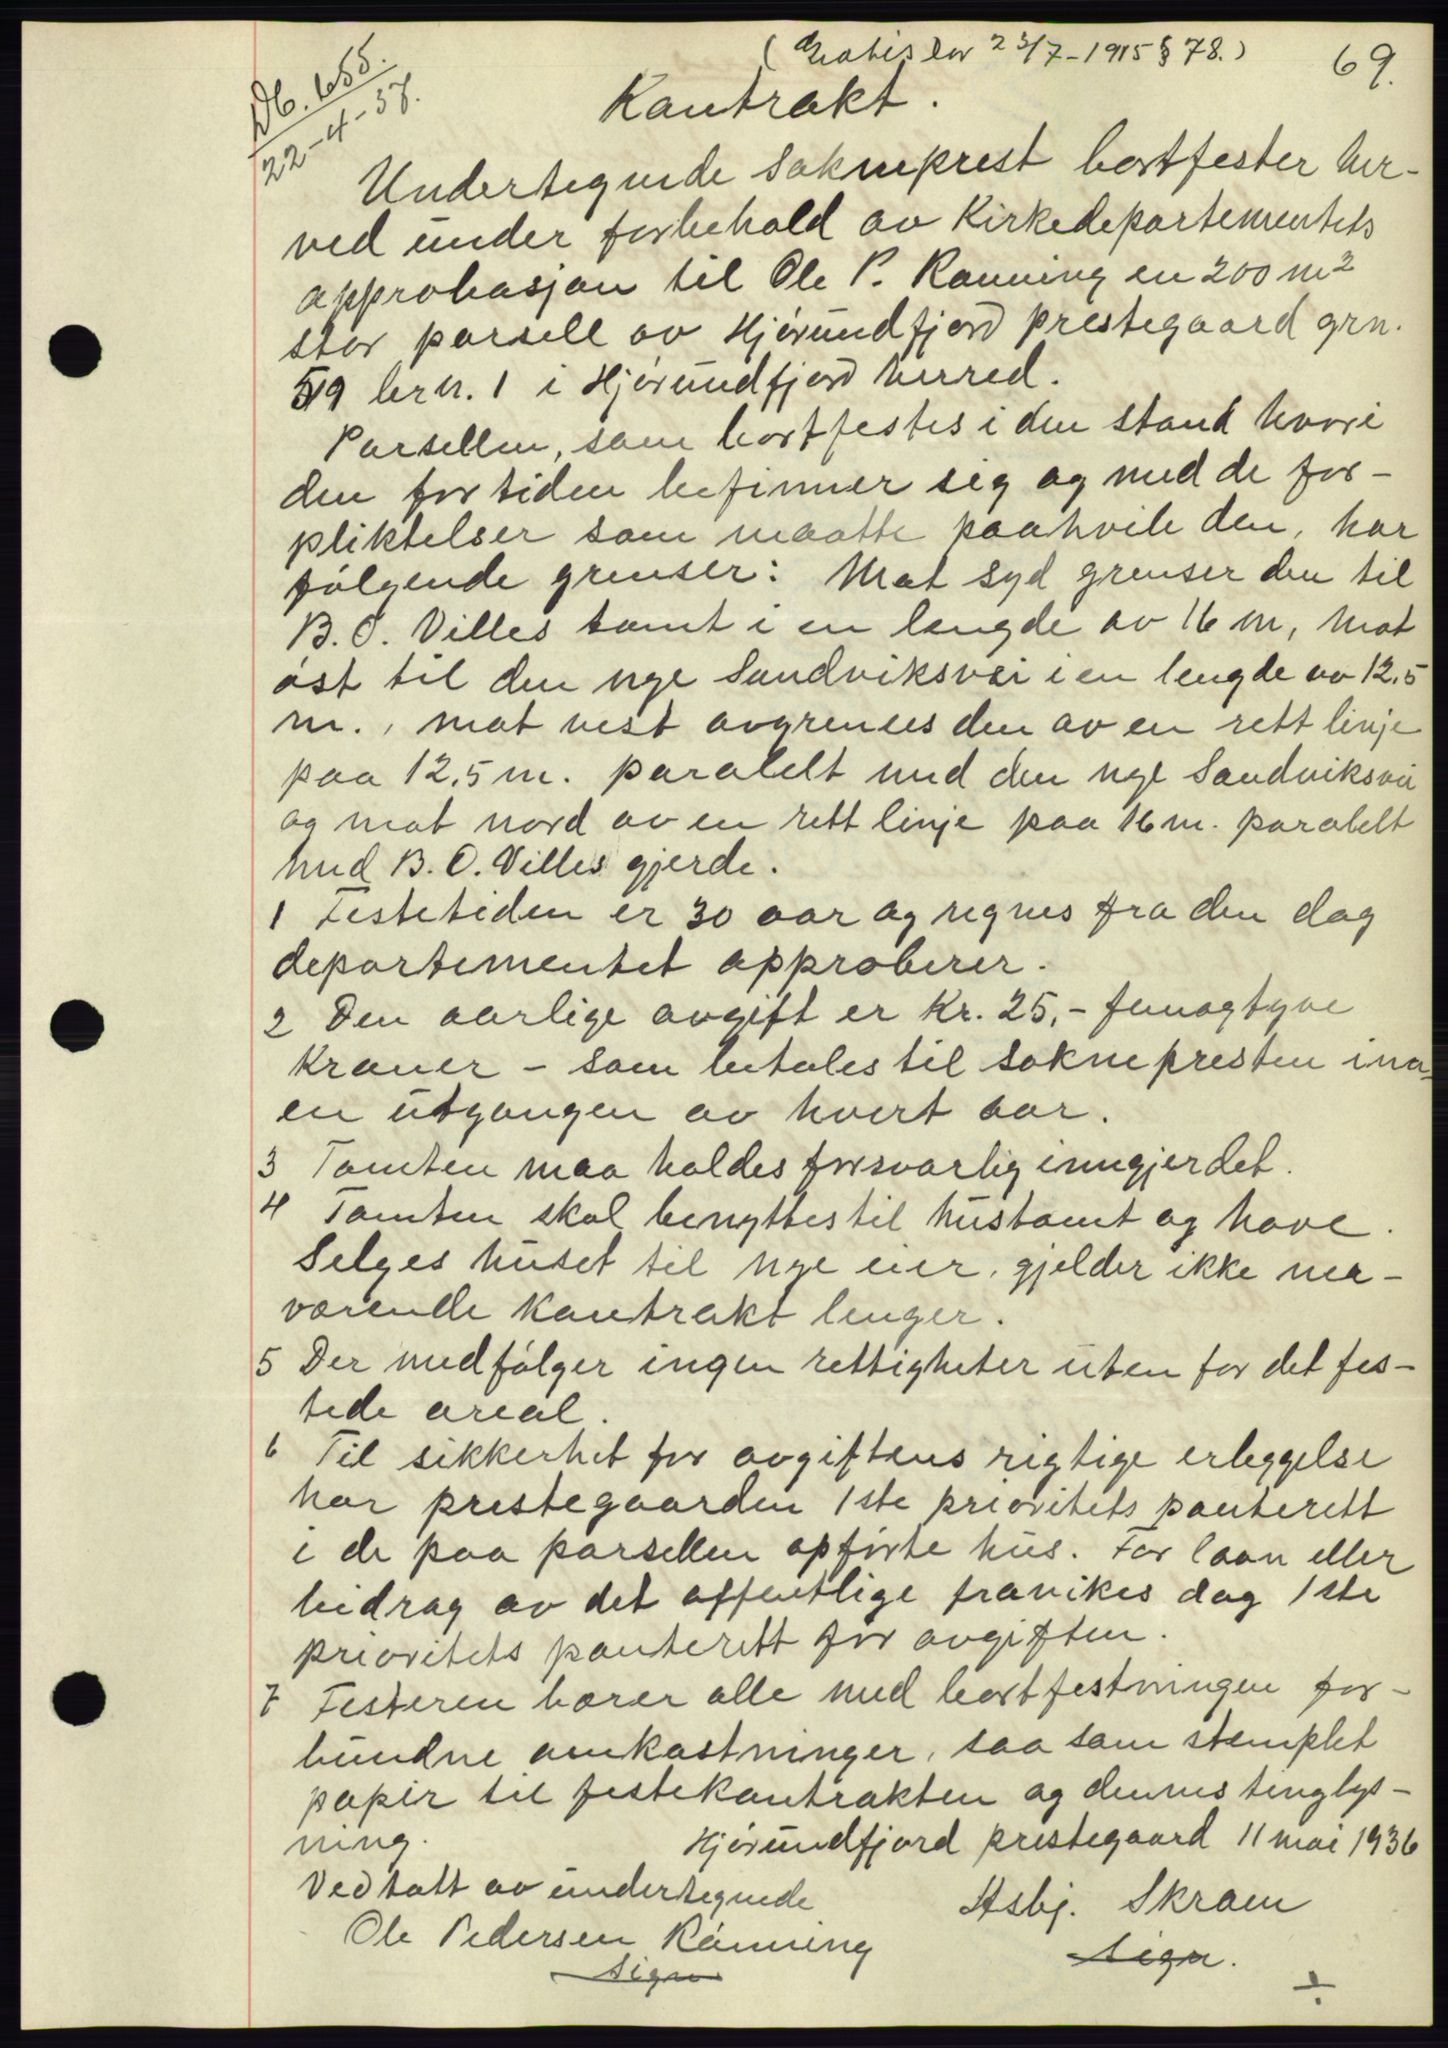 (Gratis lov 23/7-1915 § 78.)
69.
Db. 655.
22-4-37.
Kontrakt.
Undertegnede sokneprest bortfester her-
ved under forbehold av Kirkedepartementets
approbasjon til Ole P. Rønning en 200 m2
stor parsell av Hjørundfjord prestegaard grn.
59 brn. 1 i Hjørundfjord herred.
Parsellen, som bortfestes i den stand hvori
den for tiden befinner sig og med de for-
pliktelser som maatte paahvile den, har
følgende grenser: Mot syd grenser den til
B. O. Villes tomt i en lengde av 16 m, mot
øst til den nye Sandviksvei i en lengde av 12,5
m., mot vest avgrenses den av en rett linje
paa 12,5 m. paralelt med den nye Sandviksvei
og mot nord av en rett linje paa 16 m. paralelt
med B. O. Villes gjerde.
1 Festetiden er 30 aar og regnes fra den dag
departementet approberer.
2 Den aarlige avgift er Kr. 25,- femogtyve
kroner - som betales til soknepresten inn-
en utgangen av hvert aar.
3 Tomten maa holdes forsvarlig inngjerdet.
4 Tomten skal benyttes til hustomt og have.
Selges huset til nye eier, gjelder ikke nær-
værende kontrakt lenger.
5 Der medfølger ingen rettigheter uten for det fes-
tede areal.
6 Til sikkerhet for avgiftens rigtige erleggelse
har prestegaarden 1ste prioritets panterett
i de paa parsellen opførte hus. For laan eller
bidrag av det offentlige fravikes dog 1ste
prioritets panterett for avgiften.
7 Festeren bærer alle med bortfestningen for-
bundne omkostninger, saa som stemplet
papir til festekontrakten og dennes tinglys-
ning.
Hjørundfjord prestegaard 11 mai 1936
Vedtatt av undertegnede
Asbj. Skram
Ole Pedersen Rønning
sign.
sign
÷